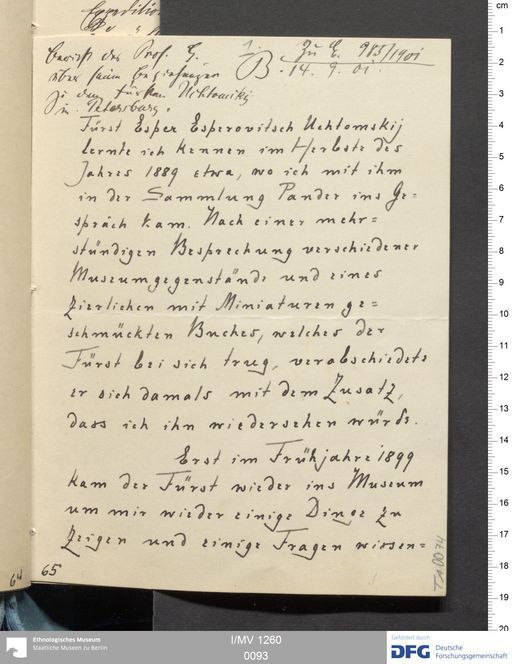 Expedition
Bericht des Prof. G.
über seine Beziehungen
zu dem Fürsten Uchtomskij
in Petersburg.
1.
Zu E. 983/1901
B. 14. 9. 01.
Fürst Esper Esperovitsch Uchtomskij
lernte ich kennen im Herbste des
Jahres 1889 etwa, wo ich mit ihm
in der Sammlung Pander ins Ge=
spräch kam. Nach einer mehr=
stündigen Besprechung verschiedener
Museumgegenstände und eines
zierlichen mit Miniaturen ge=
schmückten Buches, welches der
Fürst bei sich trug, verabschiedete
er sich damals mit dem Zusatz,
dass ich ihn wiedersehen würde.
Erst im Frühjahre 1899
kam der Fürst wieder ins Museum
um mir wieder einige Dinge zu
zeigen und einige Fragen wissen=
64
65
Ethnologisches Museum
Staatliche Museen zu Berlin
I/MV 1260
0093
Gefördert durch
DFG Deutsche
Forschungsgemeinschaft
cm
1
2
3
4
5
6
7
8
9
10
11
12
13
14
15
16
17
18
19
20